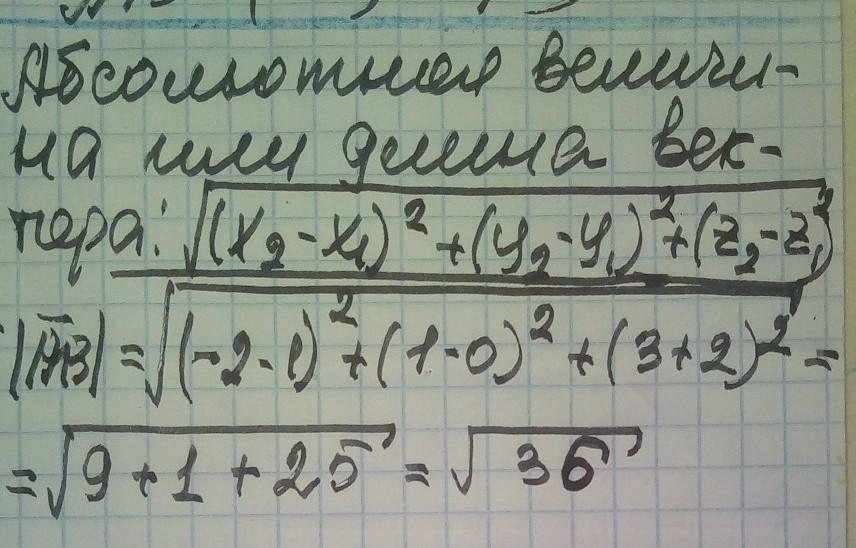 Абсолютная величи-
на или длина век-
тора: √(x₂-x₁)² + (y₂-y₁)² + (z₂-z₁)²
|AB| = √(-2-1)² + (1-0)² + (3+2)² =
= √9+1+25 = √35